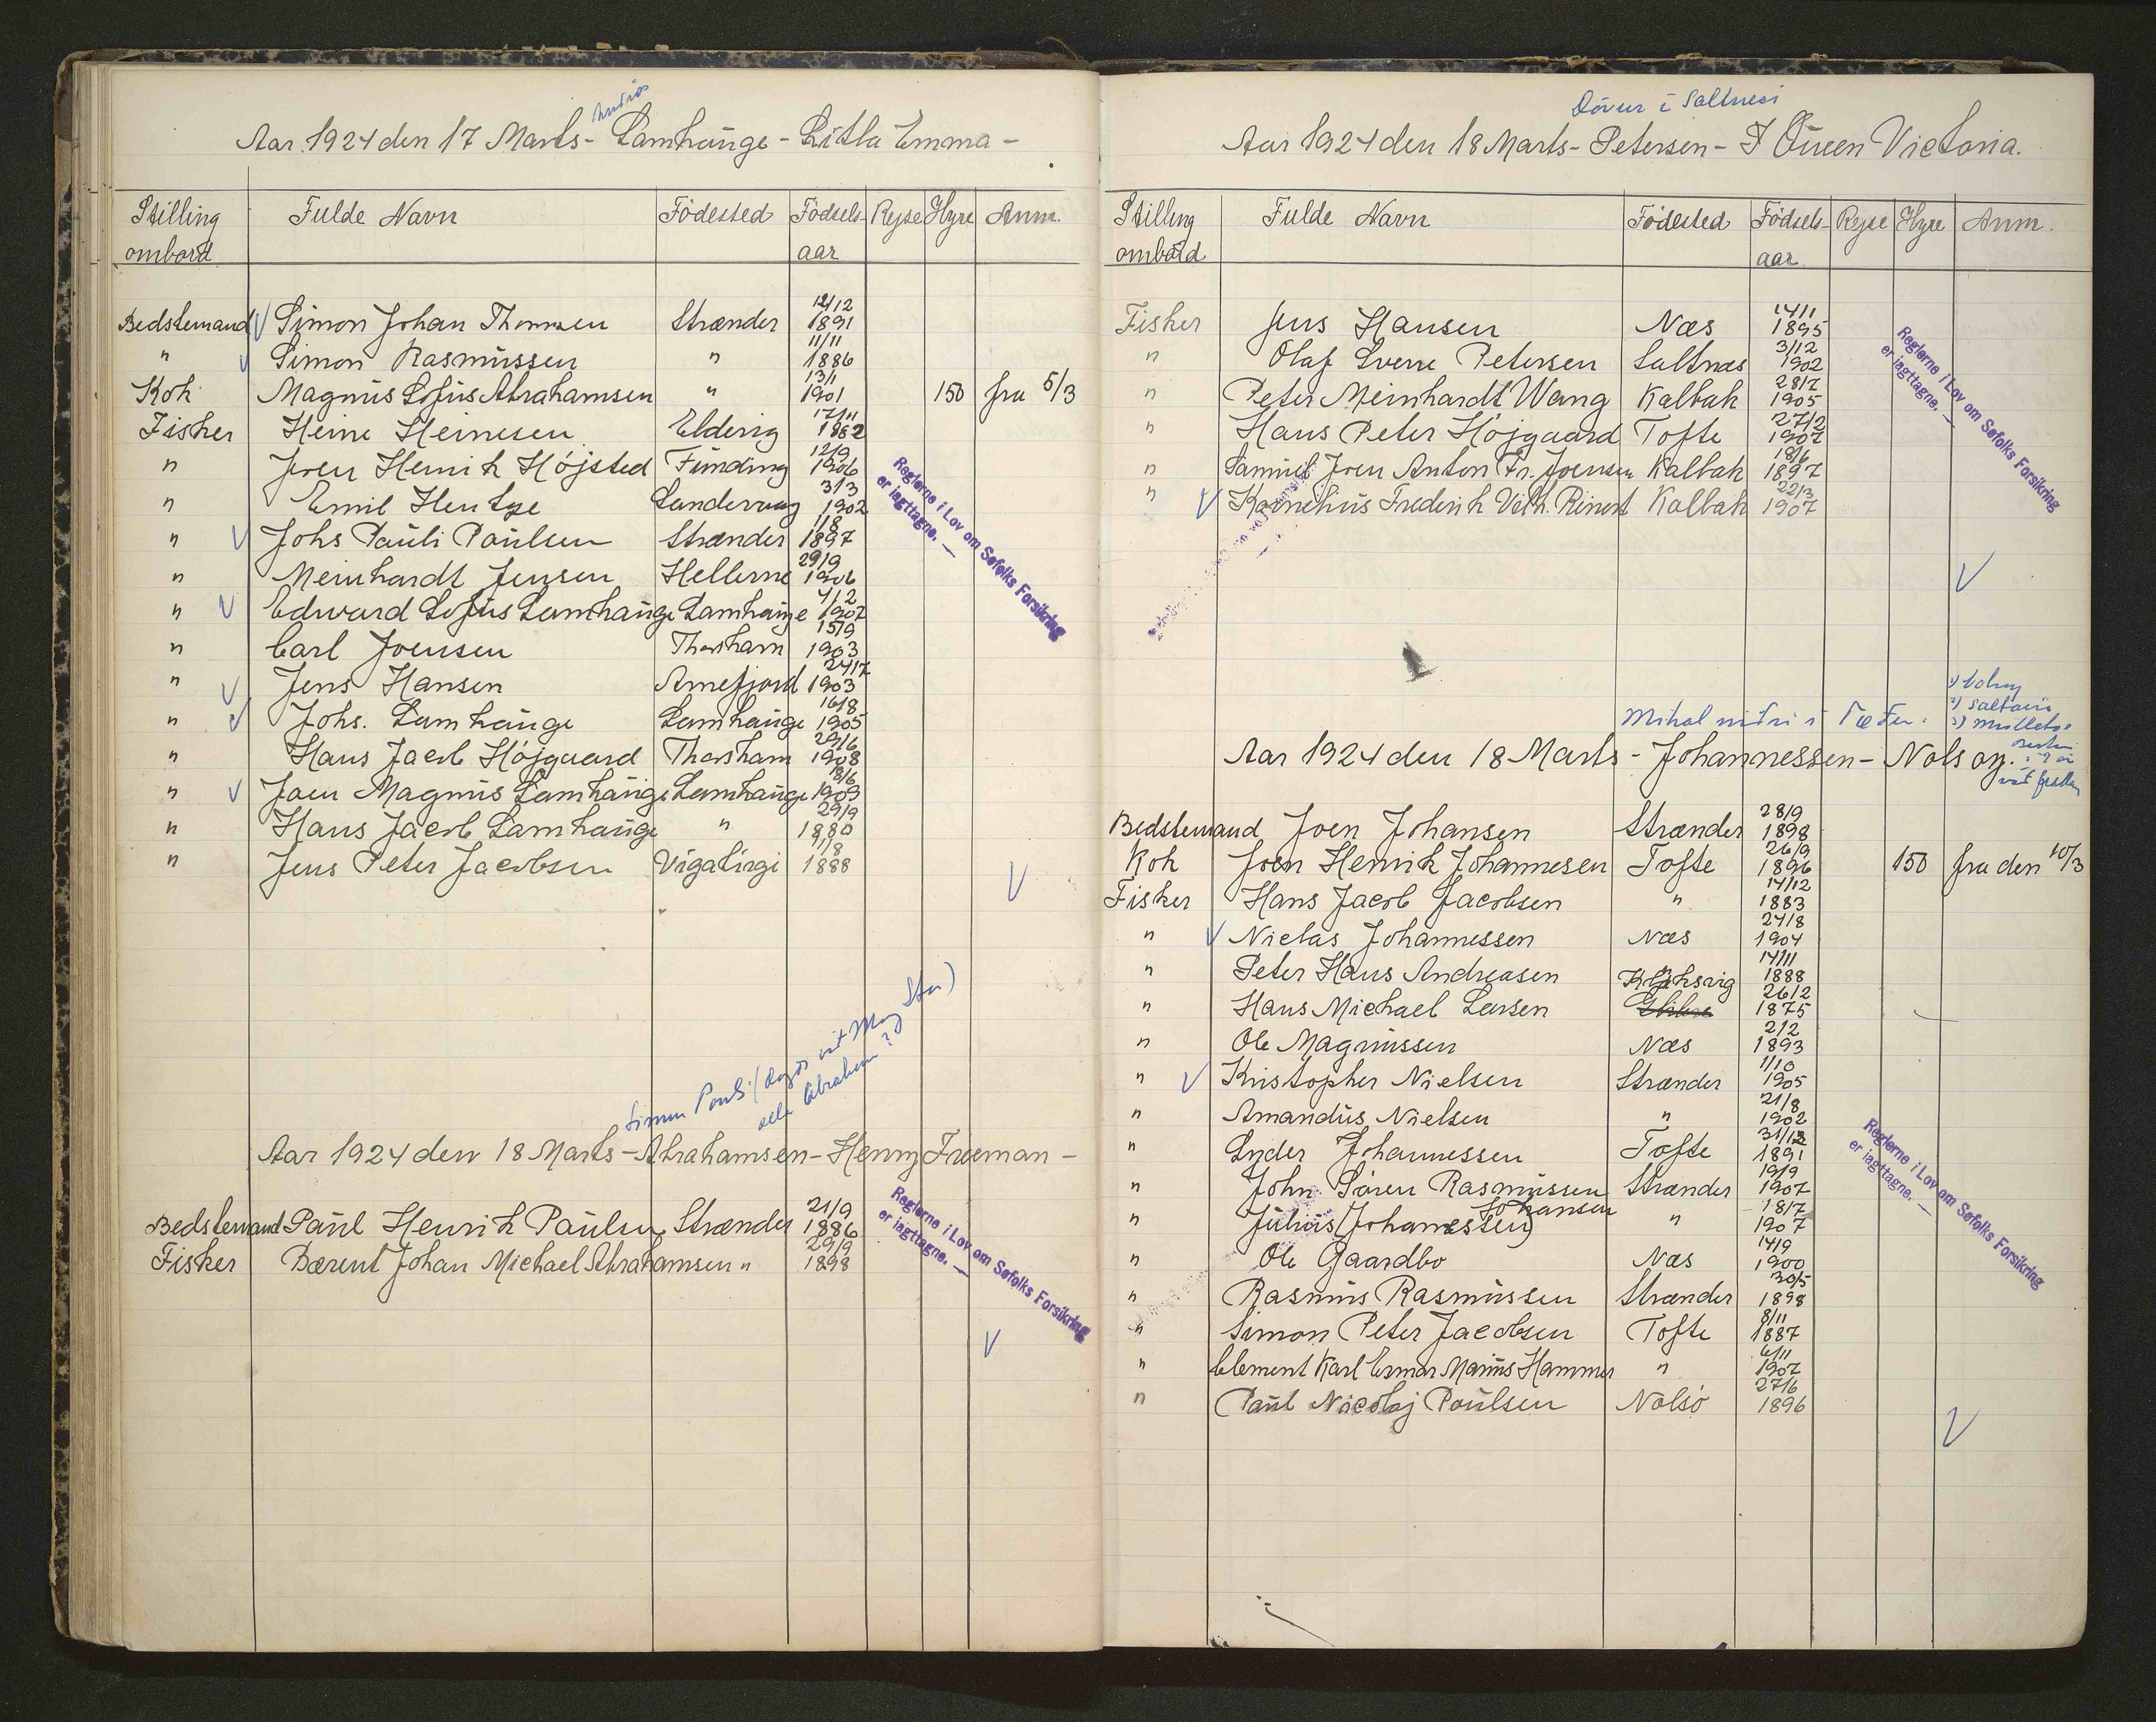 Aar 1924 den 17 Marts - Lamhauge - Litla Emma -
Stilling ombord Fulde Navn Födested Födsels-aar Rejse Hyre Anm.
Bedstemand Simon Johan Thomsen Strænder 12/12 1891
" Simon Rasmussen " 11/11 1886
Kok Magnus Sofus Abrahamsen " 13/1 1901 150 fra 5/3
Fisker Heine Heinesen Eldevig 17/11 1882
" Joen Henrik Höjsted Funding 12/9 1906
" Emil Hentze Sandevaag 3/3 1902
" Johs Pauli Paulsen Strænder 1/8 1897
" Meinhardt Jensen Hellerne 29/9 1906
" Edward Sofus Lamhauge Lamhauge 4/12 1907
" Carl Joensen Thorshavn 15/9 1903
" Jens Hansen Arnefjord 24/12 1903
" Johs. Lamhauge Lamhauge 16/8 1905
" Hans Jacob Höjgaard Thorshavn 29/6 1908
" Joen Magnus Lamhauge Lamhauge 18/6 1909
" Hans Jacob Lamhauge " 29/9 1880
" Jens Peter Jacobsen Vigabirgi 11/8 1888
Reglerne i Lov om Søfolks Forsikring
er iagttagne. —
Simun Pouli (
Aar 1924 den 18 Marts - Abrahamsen - Henry Freeman -
Bedstemand Paul Henrik Paulsen Strænder 21/9 1886
Fisker Bærent Johan Michael Abrahamsen " 29/9 1898
Reglerne i Lov om Søfolks Forsikring
er iagttagne. —
Dávur í Saltnesi
Aar 1924 den 18 Marts - Petersen - F Queen Victoria.
Stilling ombord Fulde Navn Födested Födsels-aar Rejse Hyre Anm.
Fisker Jens Hansen Næs 14/11 1895
" Olaf Sverre Petersen Saltnæs 3/12 1902
" Peter Meinhardt Wang Kalbak 28/7 1905
" Hans Peter Höjgaard Tofte 27/2 1907
" Samuel Joen Anton Fr. Joensen Kalbak 18/6 1897
" Kornelius Frederik Vilh. Reinert Kalbak 22/3 1907
Reglerne i Lov om Søfolks Forsikring
er iagttagne. —
Aar 1924 den 18 Marts - Johannessen - Nolsoy.
Bedstemand Joen Johansen Strænder 28/9 1898
Kok Joen Henrik Johannesen Tofte 26/9 1896 150 fra den 10/3
Fisker Hans Jacob Jacobsen " 14/12 1883
" Niclas Johannessen Næs 24/8 1904
" Peter Hans Andreasen " 14/11 1888
" Hans Michael Larsen Klaksvig 26/2 1875
" Ole Magnussen Næs 2/2 1893
" Kristopher Nielsen Strænder 1/10 1905
" Amandus Nielsen " 21/8 1902
" Syder Johannessen Tofte 31/12 1891
" John Sören Rasmussen Strænder 19/9 1907
" Julius (Johannessen) Johansen " 18/7 1907
" Ole Gaardbo Næs 14/9 1900
" Rasmus Rasmussen Strænder 30/5 1898
" Simon Peter Jacobsen Tofte 8/11 1887
" Clement Karl Exmar Marius Hammer " 6/11 1907
" Paul Nicolaj Poulsen Nolsö 27/6 1896
Reglerne i Lov om Søfolks Forsikring
er iagttagne. —